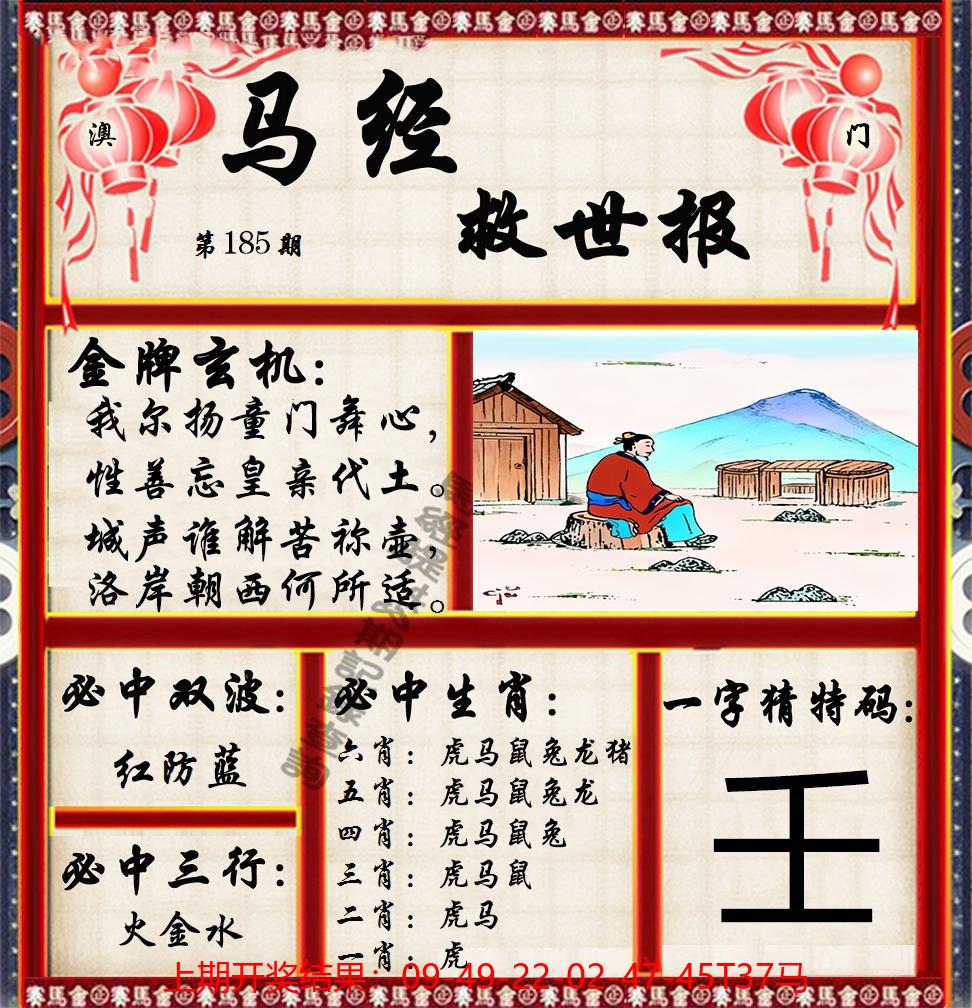 澳
门
马经
救世报
第185期
金牌玄机：
我尔扬童门舞心，
性善忘皇亲代土。
城声谁解苦祢壶，
洛岸朝西何所适。
必中双波：
红防蓝
必中三行：
火金水
必中生肖：
六肖：虎马鼠兔龙猪
五肖：虎马鼠兔龙
四肖：虎马鼠兔
三肖：虎马鼠
二肖：虎马
一肖：虎
一字猜特码：
壬
上期开奖结果：09-49-22-02-47-45T37马